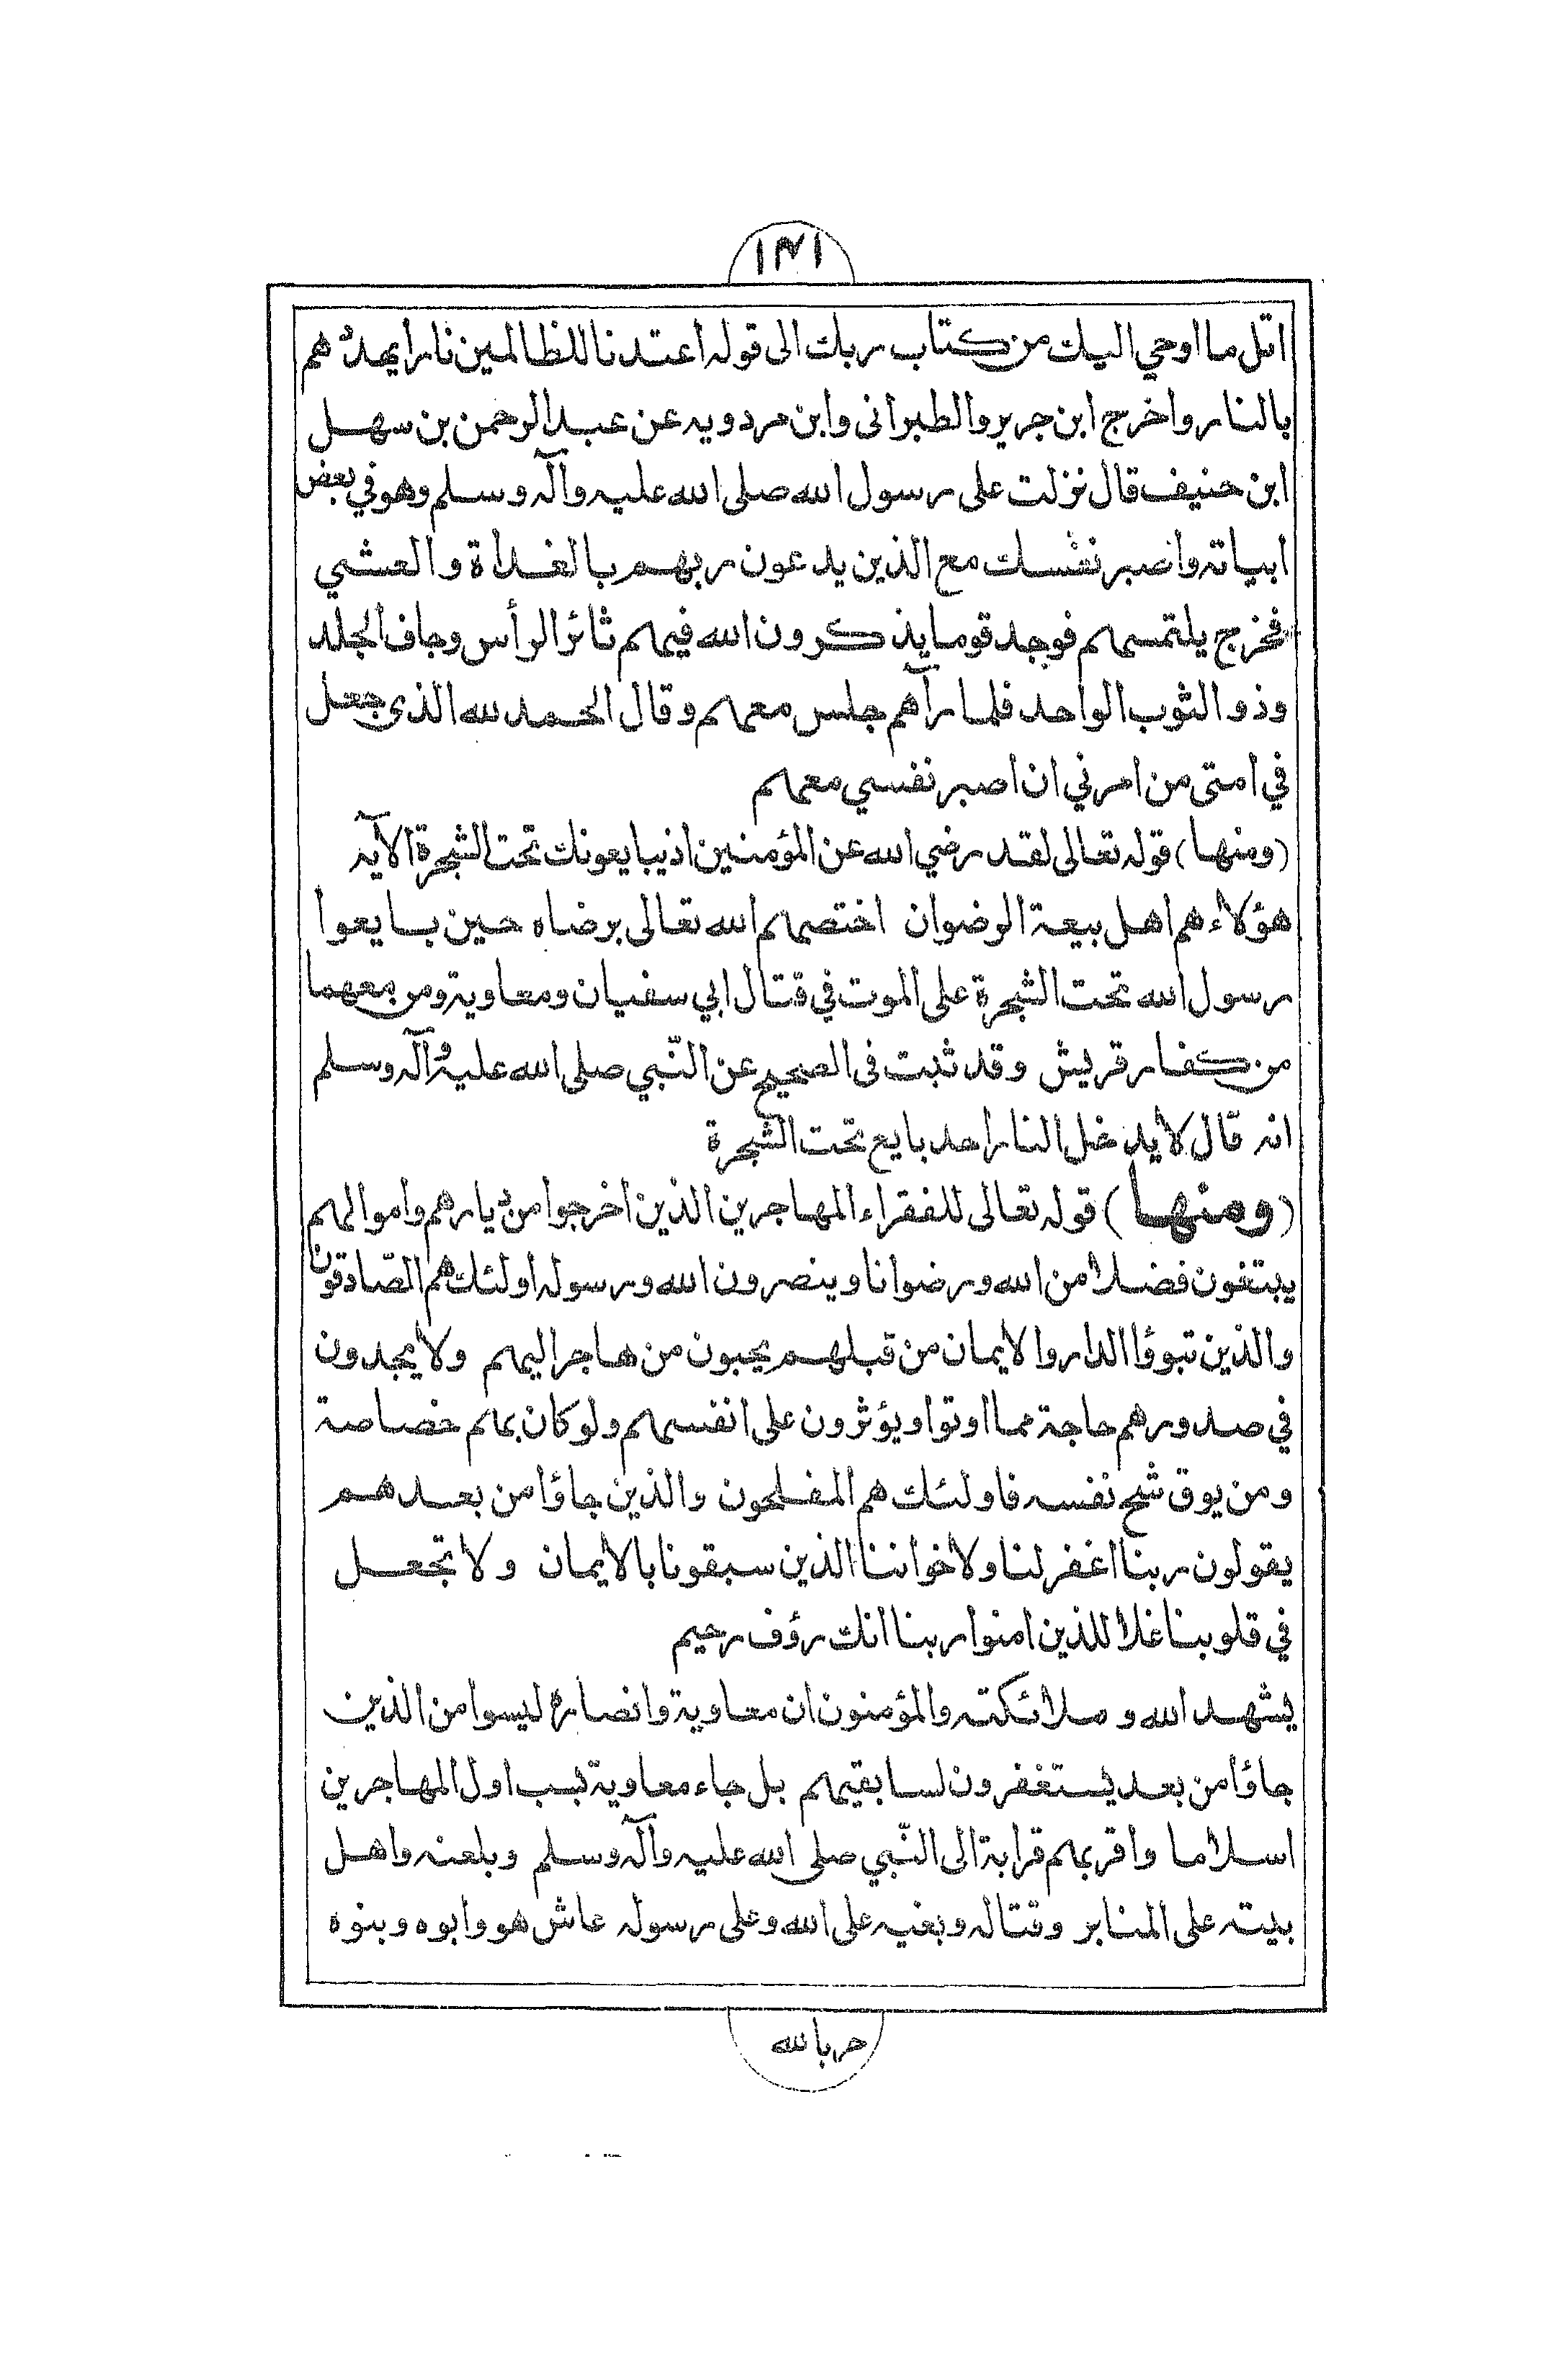 ١٣١
اتل ما اوحي اليك من كتاب ربك الى قوله اعتدنا للظالمين نارا يهددهم
بالنار واخرج ابن جرير والطبرانى وابن مردويه عن عبد الرحمن بن سهل
ابن حنيف قال نزلت على رسول الله صلى الله عليه وآله وسلم وهو في بعض
ابياته واصبر نفسك مع الذين يدعون ربهم بالغداة والعشي
فخرج يلتمسهم فوجد قوما يذكرون الله فيهم ثائر الرأس وجاف الجلد
وذو الثوب الواحد فلما رآهم جلس معهم وقال الحمد لله الذى جعل
في امتى من امرني ان اصبر نفسي معهم
(ومنها) قوله تعالى لقد رضي الله عن المؤمنين اذ يبايعونك تحت الشجرة الآيه
هؤلاء هم اهل بيعة الرضوان اختصهم الله تعالى برضاه حين بايعوا
رسول الله تحت الشجرة على الموت في قتال ابي سفيان ومعاوية ومن معهما
من كفار قريش وقد ثبت فى الصحيح عن النّبي صلى الله عليه وآله وسلم
انه قال لا يدخل النار احد بايع تحت الشجرة
(ومنها) قوله تعالى للفقراء المهاجرين الذين اخرجوا من ديارهم واموالهم
يبتغون فضلا من الله ورضوانا وينصرون الله ورسوله اولئك هم الصّادقون
والذين تبوؤا الدار والايمان من قبلهم يحبون من هاجر اليهم ولا يجدون
في صدورهم حاجة مما اوتوا ويؤثرون على انفسهم ولو كان بهم خصاصة
ومن يوق شح نفسه فاولئك هم المفلحون والذين جاؤا من بعدهم
يقولون ربنا اغفر لنا ولاخواننا الذين سبقونا بالايمان ولا تجعل
في قلوبنا غلا للذين امنوا ربنا انك رؤف رحيم
يشهد الله وملائكته والمؤمنون ان معاوية وانصاره ليسوا من الذين
جاؤا من بعد يستغفرون لسابقيهم بل جاء معاوية بسب اول المهاجرين
اسلاما واقربهم قرابة الى النّبي صلى الله عليه وآله وسلم وبلعنه واهل
بيته على المنابر وقتاله وبغيه على الله وعلى رسوله عاش هو وابوه وبنوه
حربا لله